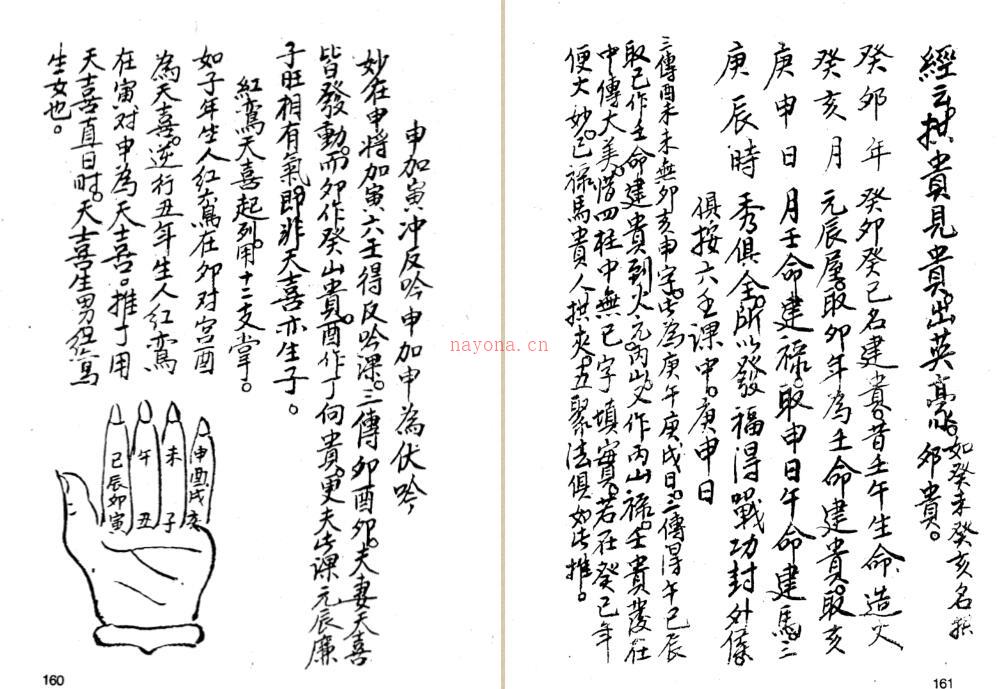 經云拱貴見貴出英豪。如癸未癸亥名拱
卯貴。
癸卯年 癸卯癸巳名建貴。昔壬午生命造火
癸亥月 元辰屋。取卯年為壬命建貴。取亥
庚申日 月壬命建祿。取申日午命建馬。三
庚辰時 秀俱全。所以發福得戰功封外僕
俱按六壬課中。庚申日
三傳酉未未無卯亥申字。此為庚午庚戌日。三傳得午巳辰
取巳作壬命建貴到火元。丙山又作丙山祿。壬貴發在
中傳大美。惜四柱中無巳字填實。若在癸巳年
便大妙。巳祿馬貴人拱夾。十五聚法俱如此推。
161
申加寅冲反吟申加申為伏吟
妙在申將加寅六壬得反吟課。三傳卯酉卯。夫妻天喜
皆發動。而卯作癸山貴。酉作丁向貴。更夫此課元辰廉
子旺相有氣。即非天喜亦生子。
紅鸞天喜起列。用十二支掌。
如子年生人紅鸞在卯对宮酉
為天喜。逆行丑年生人紅鸞
在寅对申為天喜。推丁用
天喜直日时。天喜生男紅鸞
生女也。
申酉戌亥
未 子
午 丑
巳辰卯寅
160
nayona.cn